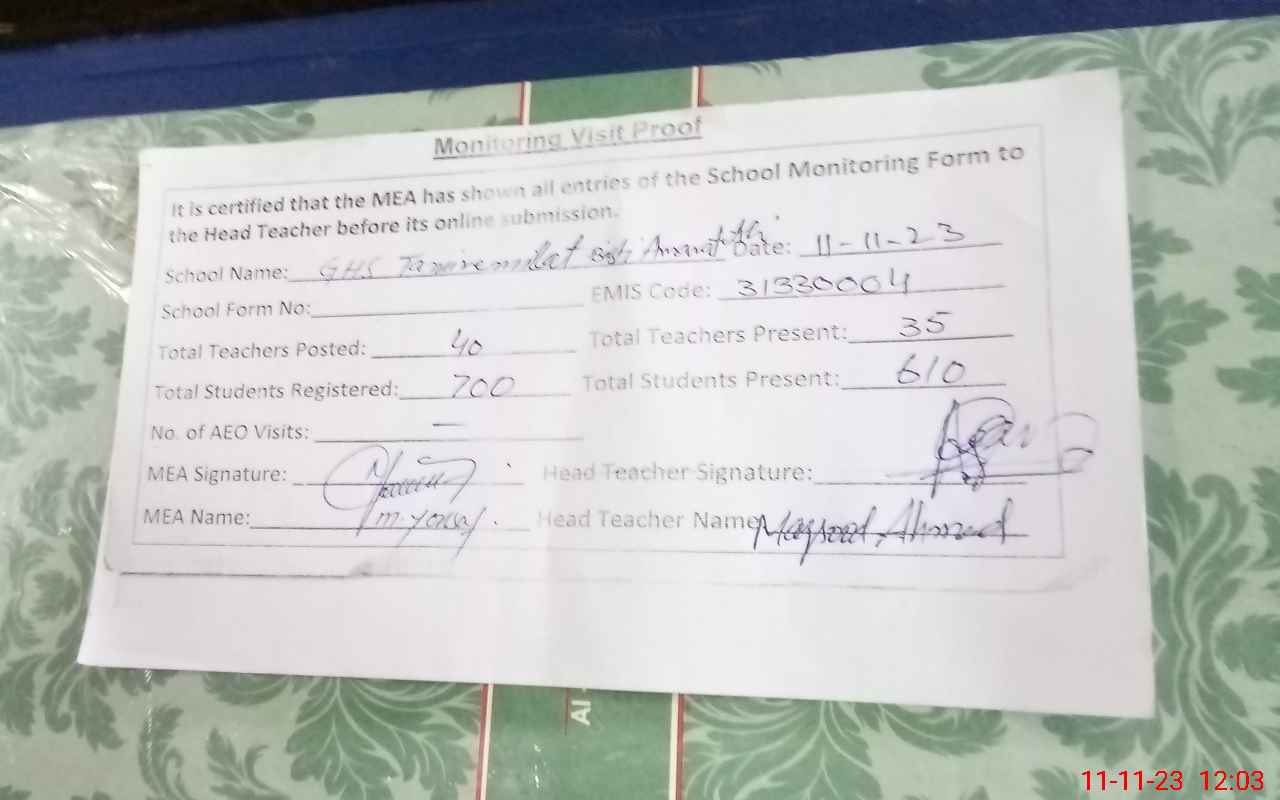 Monitoring Visit Proof
It is certified that the MEA has shown all entries of the School Monitoring Form to
the Head Teacher before its online submission.
School Name: GHS Date: 11-11-23
School Form No: EMIS Code: 31330004
Total Teachers Posted: 40 Total Teachers Present: 35
Total Students Registered: 700 Total Students Present: 610
No. of AEO Visits: —
MEA Signature: Head Teacher Signature:
MEA Name: m. yousaf. Head Teacher Name Maqsood Ahmed
AI
11-11-23 12:03